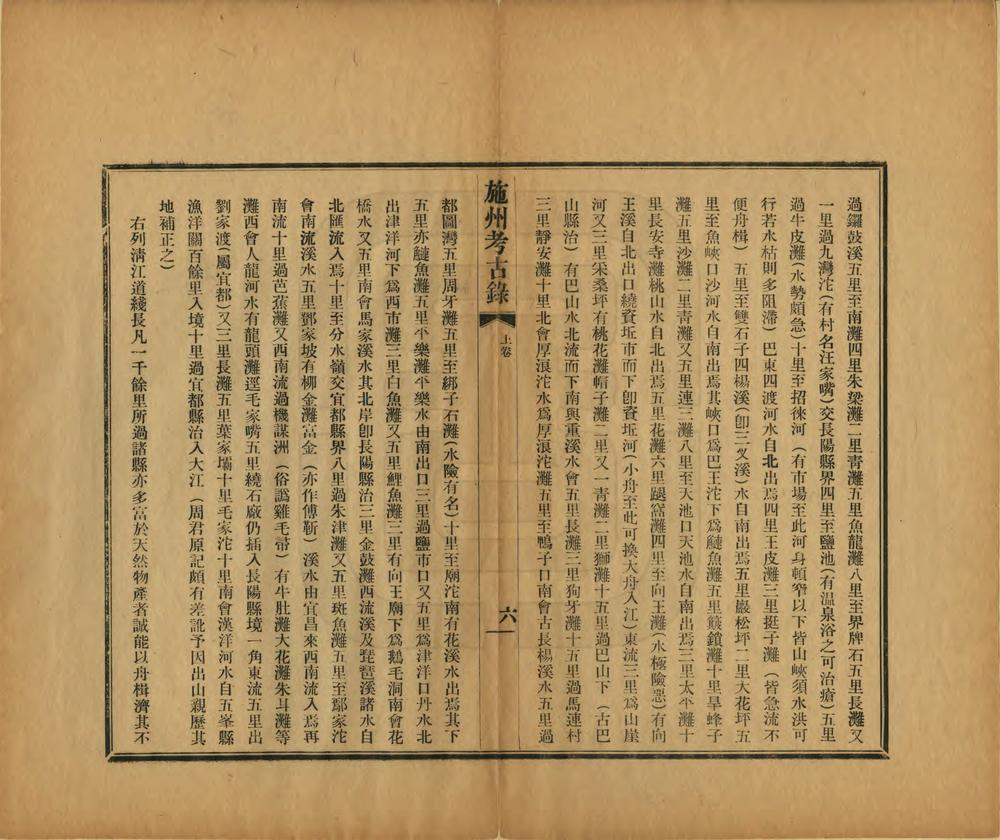 過鑼鼓溪五里至南灘四里朱梁灘二里青灘五里魚龍灘八里至界牌石五里長灘又
一里過九灣沱(有村名汪家嘴)交長陽縣界四里至鹽池(有温泉浴之可治瘡)五里
過牛皮灘(水勢頗急)十里至招徠河(有市場至此河身頓窄以下皆山峽須水洪可
行若水枯則多阻滯)巴東四渡河水自北出焉四里王皮灘三里挺子灘(皆急流不
便舟楫)五里至雙石子四楊溪(卽三叉溪)水自南出焉五里巖松坪二里大花坪五
里至魚峽口沙河水自南出焉其峽口爲巴王沱下爲鰱魚灘五里簇鎖灘十里旱蜂子
灘五里沙灘二里青灘又五里連三灘八里至天池口天池水自南出焉三里太平灘十
里長安寺灘桃山水自北出焉五里花灘六里腿窩灘四里至向王灘(水極險惡)有向
王溪自北出口繞資坵市而下卽資坵河(小舟至此可換大舟入江)東流三里爲山崖
河又三里采桑坪有桃花灘帽子灘二里又一青灘二里獅灘十五里過巴山下(古巴
山縣治)有巴山水北流而下南與重溪水會五里長灘三里狗牙灘十五里過馬連村
三里靜安灘十里北會厚浪沱水爲厚浪沱灘五里至鴨子口南會古長楊溪水五里過
施州考古錄
上卷
六
都圖灣五里周牙灘五里至綁子石灘(水險有名)十里至廟沱南有花溪水出焉其下
五里亦鰱魚灘五里平樂灘平樂水由南出口三里過鹽市口又五里爲津洋口丹水北
出津洋河下爲西市灘三里白魚灘又五里鯉魚灘三里有向王廟下爲鵝毛洞南會花
橋水又五里南會馬家溪水其北岸卽長陽縣治三里金鼓灘西流溪及琵琶溪諸水自
北匯流入焉十里至分水嶺交宜都縣界八里過朱津灘又五里斑魚灘五里至鄢家沱
會南流溪水五里鄧家坡有柳金灘富金(亦作傅靳)溪水由宜昌來西南流入焉再
南流十里過芭蕉灘又西南流過機謀洲(俗譌雞毛帚)有牛肚灘大花灘朱斗灘等
灘西會人龍河水有龍頭灘逕毛家嘴五里繞石廠仍插入長陽縣境一角東流五里出
劉家渡(屬宜都)又三里長灘五里葉家壩十里毛家沱十里南會漢洋河水自五峯縣
漁洋關百餘里入境十里過宜都縣治入大江(周君原記頗有差訛予因出山親歷其
地補正之)
右列淸江道綫長凡一千餘里所過諸縣亦多富於天然物產者誠能以舟楫濟其不